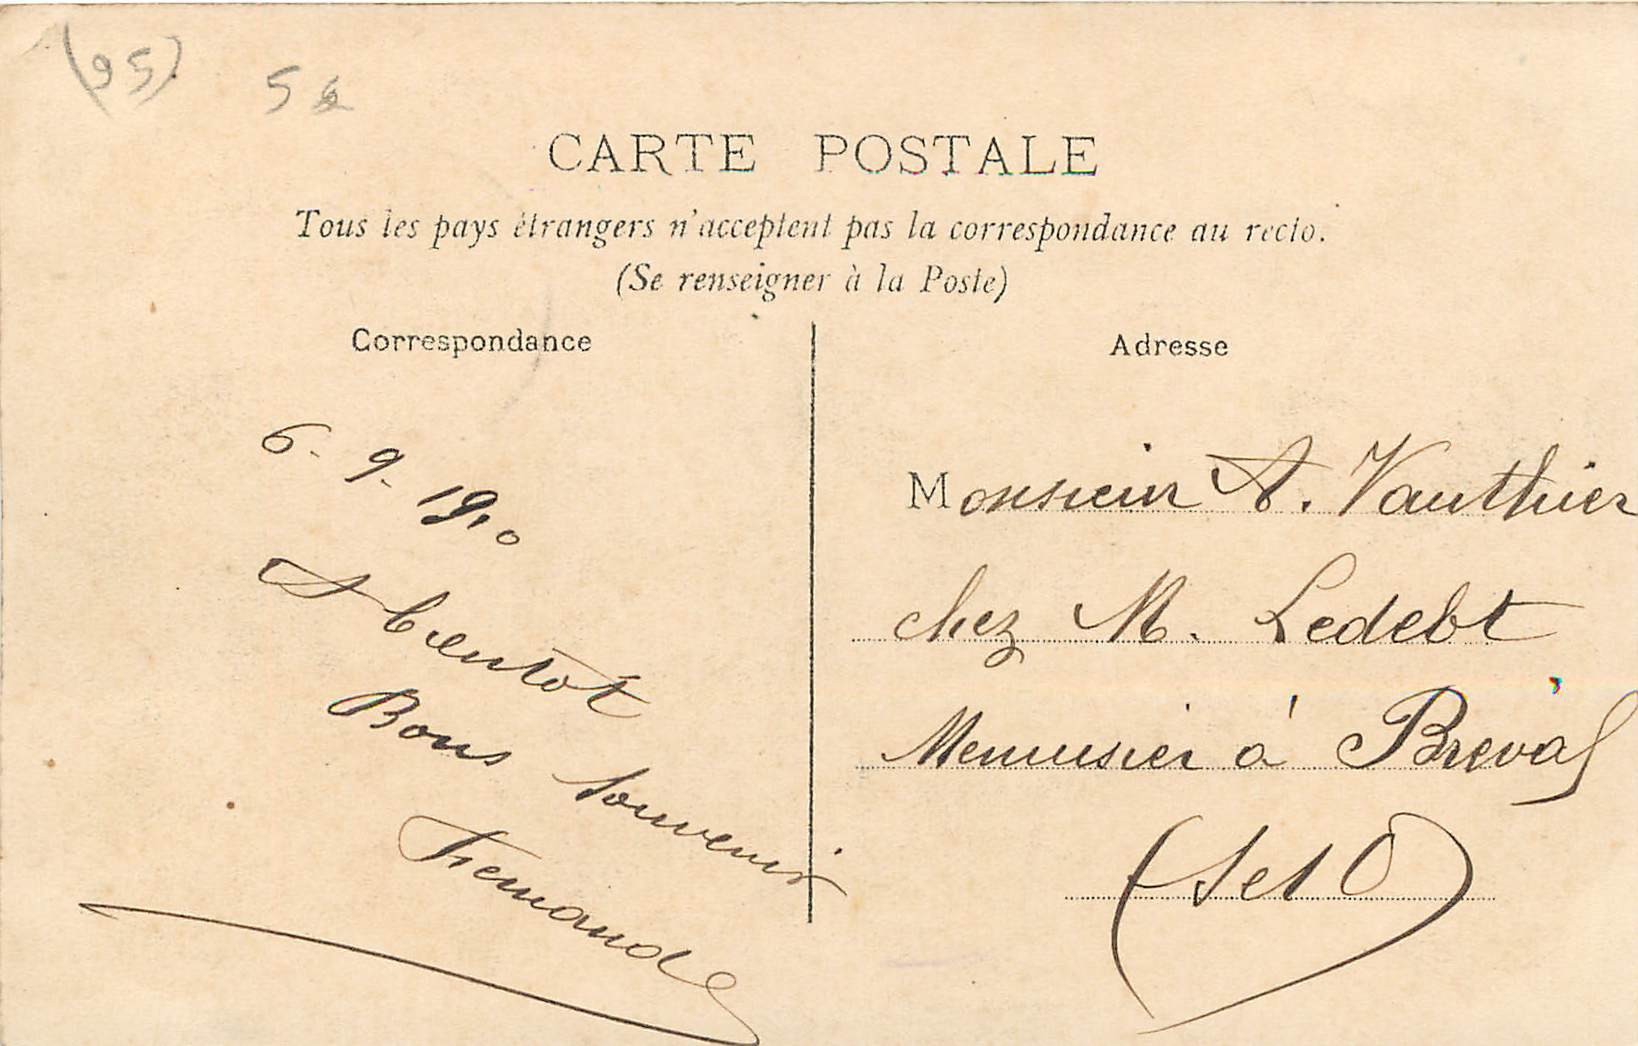 (95)
5
CARTE POSTALE
Tous les pays étrangers n'acceptent pas la correspondance au recto.
(Se renseigner à la Poste)
Correspondance
6-9-1910
A bientôt
Bons souvenirs
Fernande
Adresse
Monsieur A. Vauthier
chez M. Ledebt
Menuisier à Bréval
(S et O)